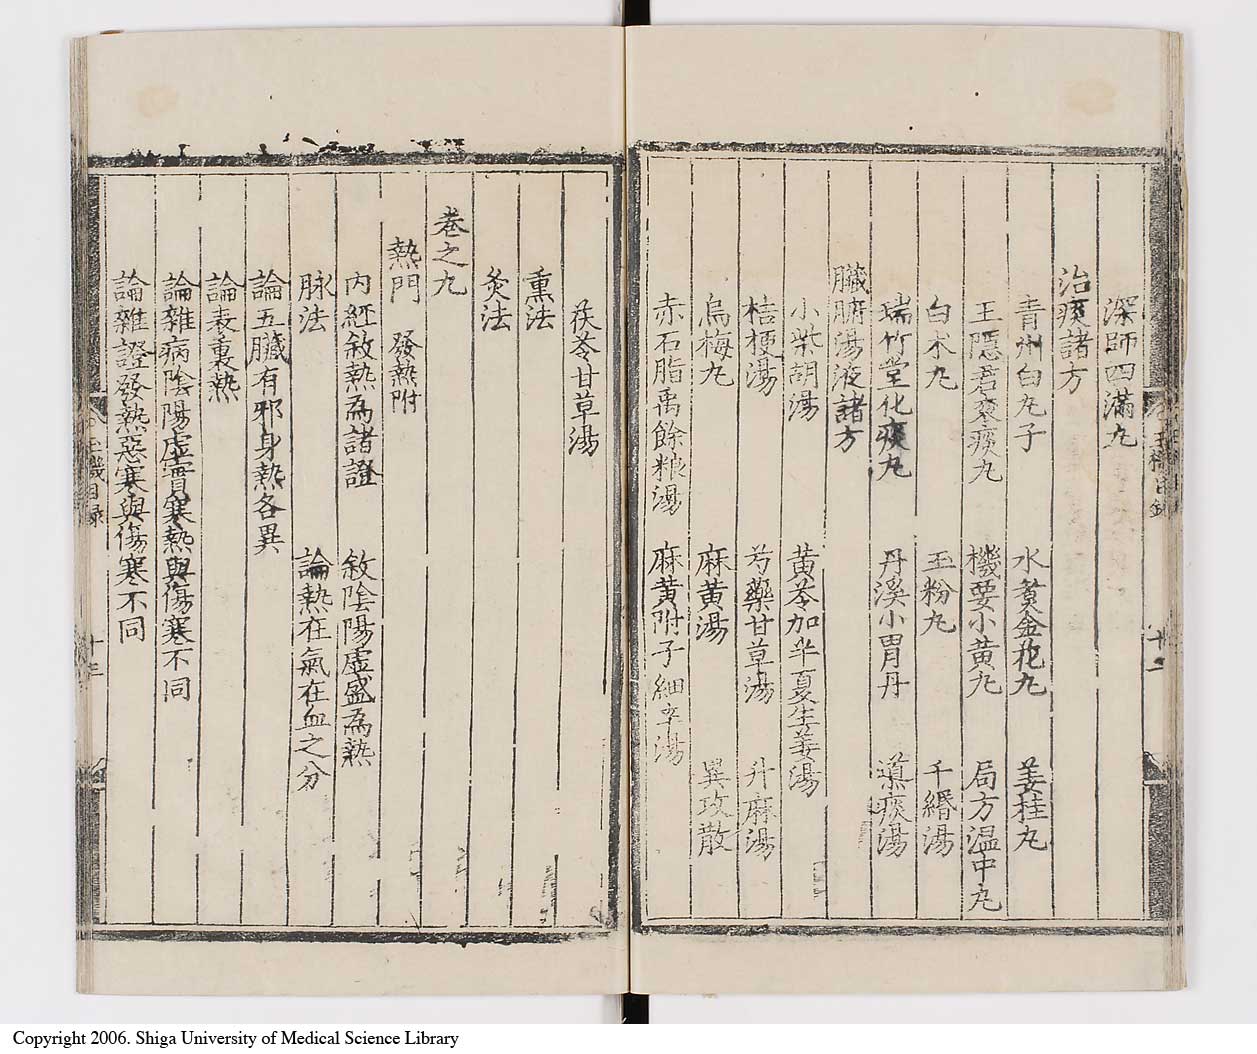 深師四滿丸
治痰諸方
青州白丸子 水煑金花丸 姜桂丸
王隱君衮痰丸 機要小黃丸 局方温中丸
白朮丸 玉粉丸 千緡湯
瑞竹堂化痰丸 丹溪小胃丹 導痰湯
臟腑湯液諸方
小柴胡湯 黃芩加半夏生姜湯
桔梗湯 芍藥甘草湯 升麻湯
烏梅丸 麻黃湯 異攻散
赤石脂禹餘粮湯 麻黃附子細辛湯
茯苓甘草湯
熏法
灸法
卷之九
熱門 發熱附
內經敘熱為諸證 敘陰陽虛盛為熱
脉法 論熱在氣在血之分
論五臟有邪身熱各異
論表裏熱
論雜病陰陽虛實寒熱與傷寒不同
論雜證發熱惡寒與傷寒不同
十三
Copyright 2006. Shiga University of Medical Science Library